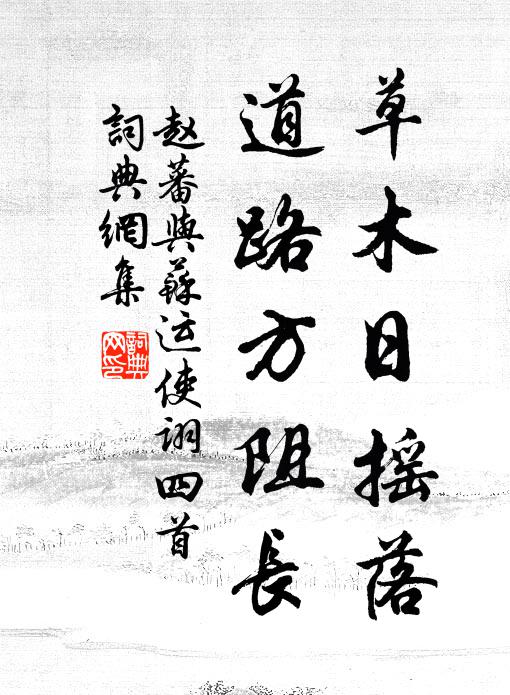 草木日摇落
道路方阻長
赵蕃與蘇运使诩四首
詞典網集
詞典網印